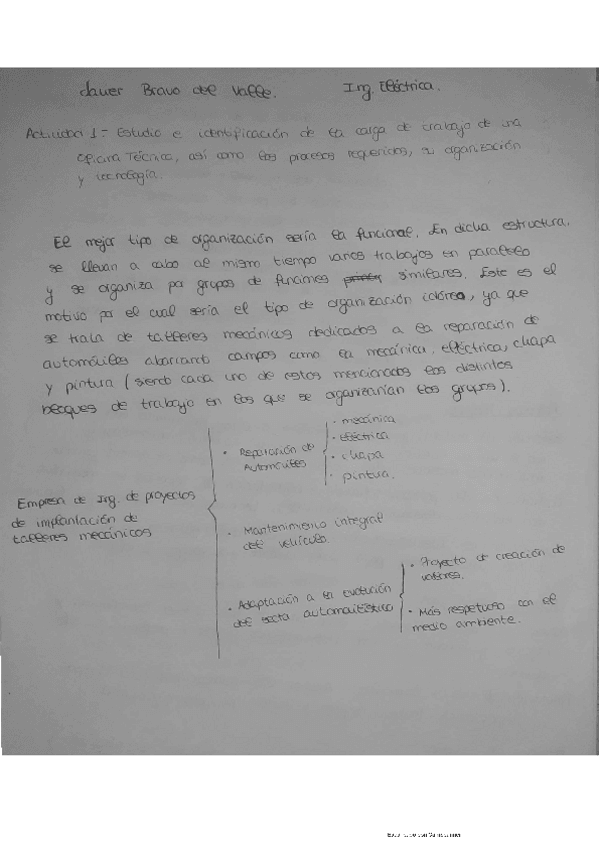 Javier Bravo del Valle. Ing. Eléctrica.
Actividad 1 = Estudio e identificación de la carga de trabajo de una
Oficina Técnica, así como los procesos requeridos, su organización
y tecnología.
El mejor tipo de organización sería la funcional. En dicha estructura.
se llevan a cabo al mismo tiempo varios trabajos en paralelo
y se organiza por grupos de funciones similares. Este es el
motivo por el cual sería el tipo de organización idónea, ya que
se trata de talleres mecánicos dedicados a la reparación de
automóviles abarcando campos como la mecánica, eléctrica, chapa
y pintura (siendo cada uno de estos mencionados los distintos
bloques de trabajo en los que se organizarían los grupos).
Empresa de Ing. de proyectos
de implantación de
talleres mecánicos
· Reparación de
Automóviles
· mecánica
· Eléctrica
· chapa
· pintura.
· Mantenimiento integral
del vehículo.
· Adaptación a la evolución
del sector automovilístico
· Proyecto de creación de
valores.
· Más respetuoso con el
medio ambiente.